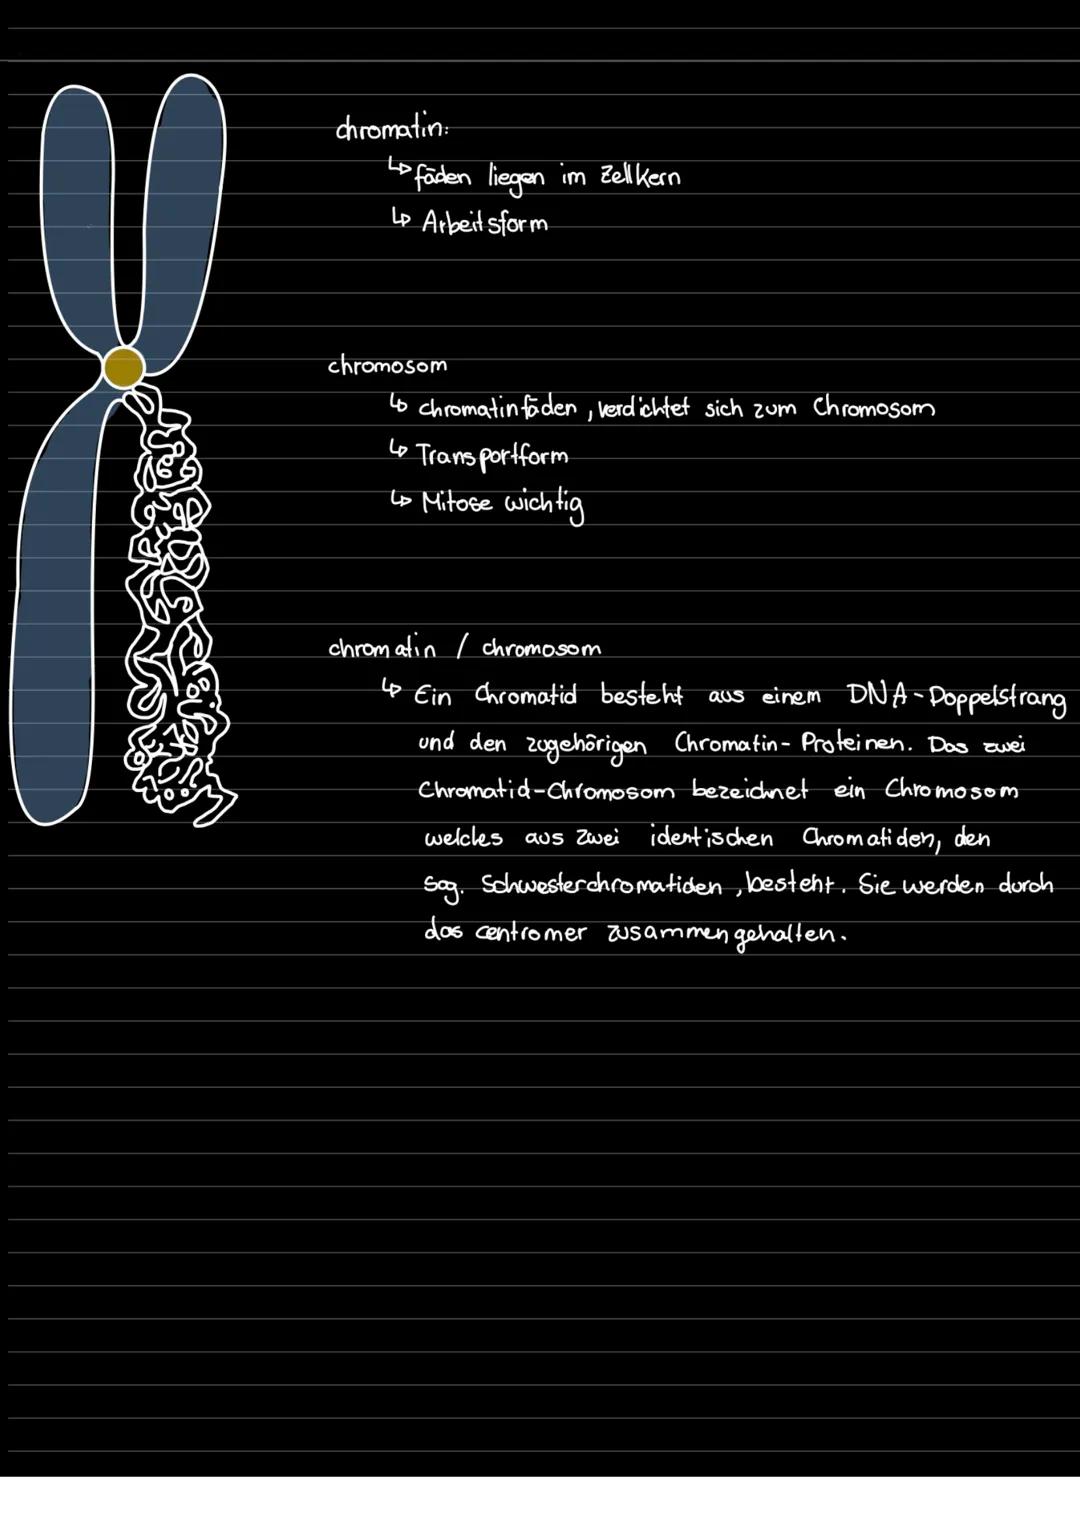 chromatin:
↳ fäden liegen im Zellkern
↳ Arbeitsform
chromosom
↳ chromatinfäden, verdichtet sich zum Chromosom
↳ Transportform
↳ Mitose wichtig
chromatin / chromosom
↳ Ein Chromatid besteht aus einem DNA-Doppelstrang
und den zugehörigen Chromatin-Proteinen. Das zwei
Chromatid-Chromosom bezeichnet ein Chromosom
welches aus zwei identischen Chromatiden, den
sog. Schwesterchromatiden, besteht. Sie werden durch
das centromer zusammengehalten.